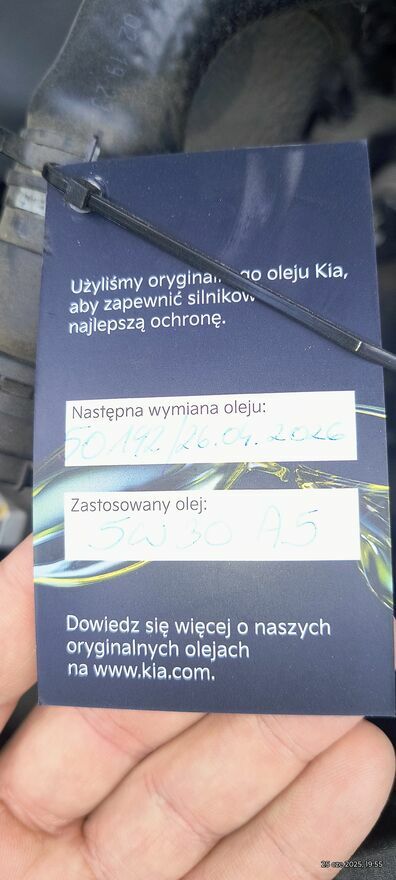 Użyliśmy oryginalnego oleju Kia,
aby zapewnić silnikowi
najlepszą ochronę.
Następna wymiana oleju:
50192/26.04.2026
Zastosowany olej:
5W30 A5
Dowiedz się więcej o naszych
oryginalnych olejach
na www.kia.com.
25 cze 2025, 19:55